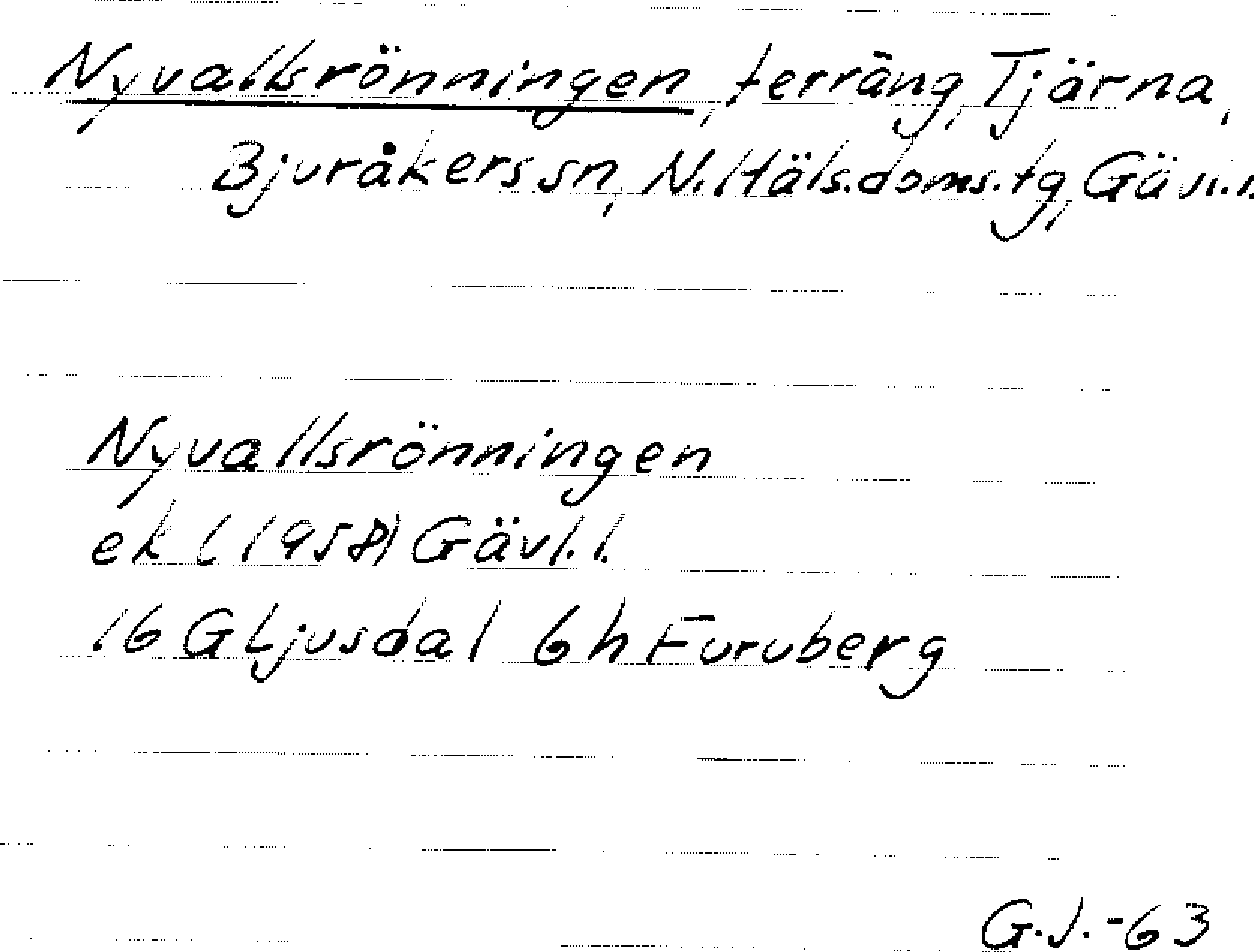 Nyvallsrönningen, terräng, Tjärna,
Bjuråkers sn, N. Häls. doms. tg, Gävl. l.
Nyvallsrönningen
ek (1958) Gävl. l.
16 G Ljusdal 6h Furuberg
G.J. -63